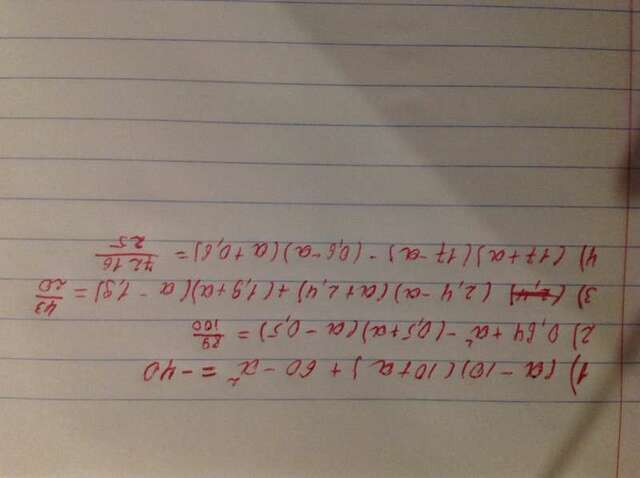 1) (a - 10)(10 + a) + 60 - a² = -40
2) 0,64 + a² - (0,5 + a)(a - 0,5) = 89/100
3) (2,4 - a)(a + 2,4) + (1,9 + a)(a - 1,9) = 43/20
4) (17 + a)(17 - a) - (0,6 - a)(a + 0,6) = 7216/25